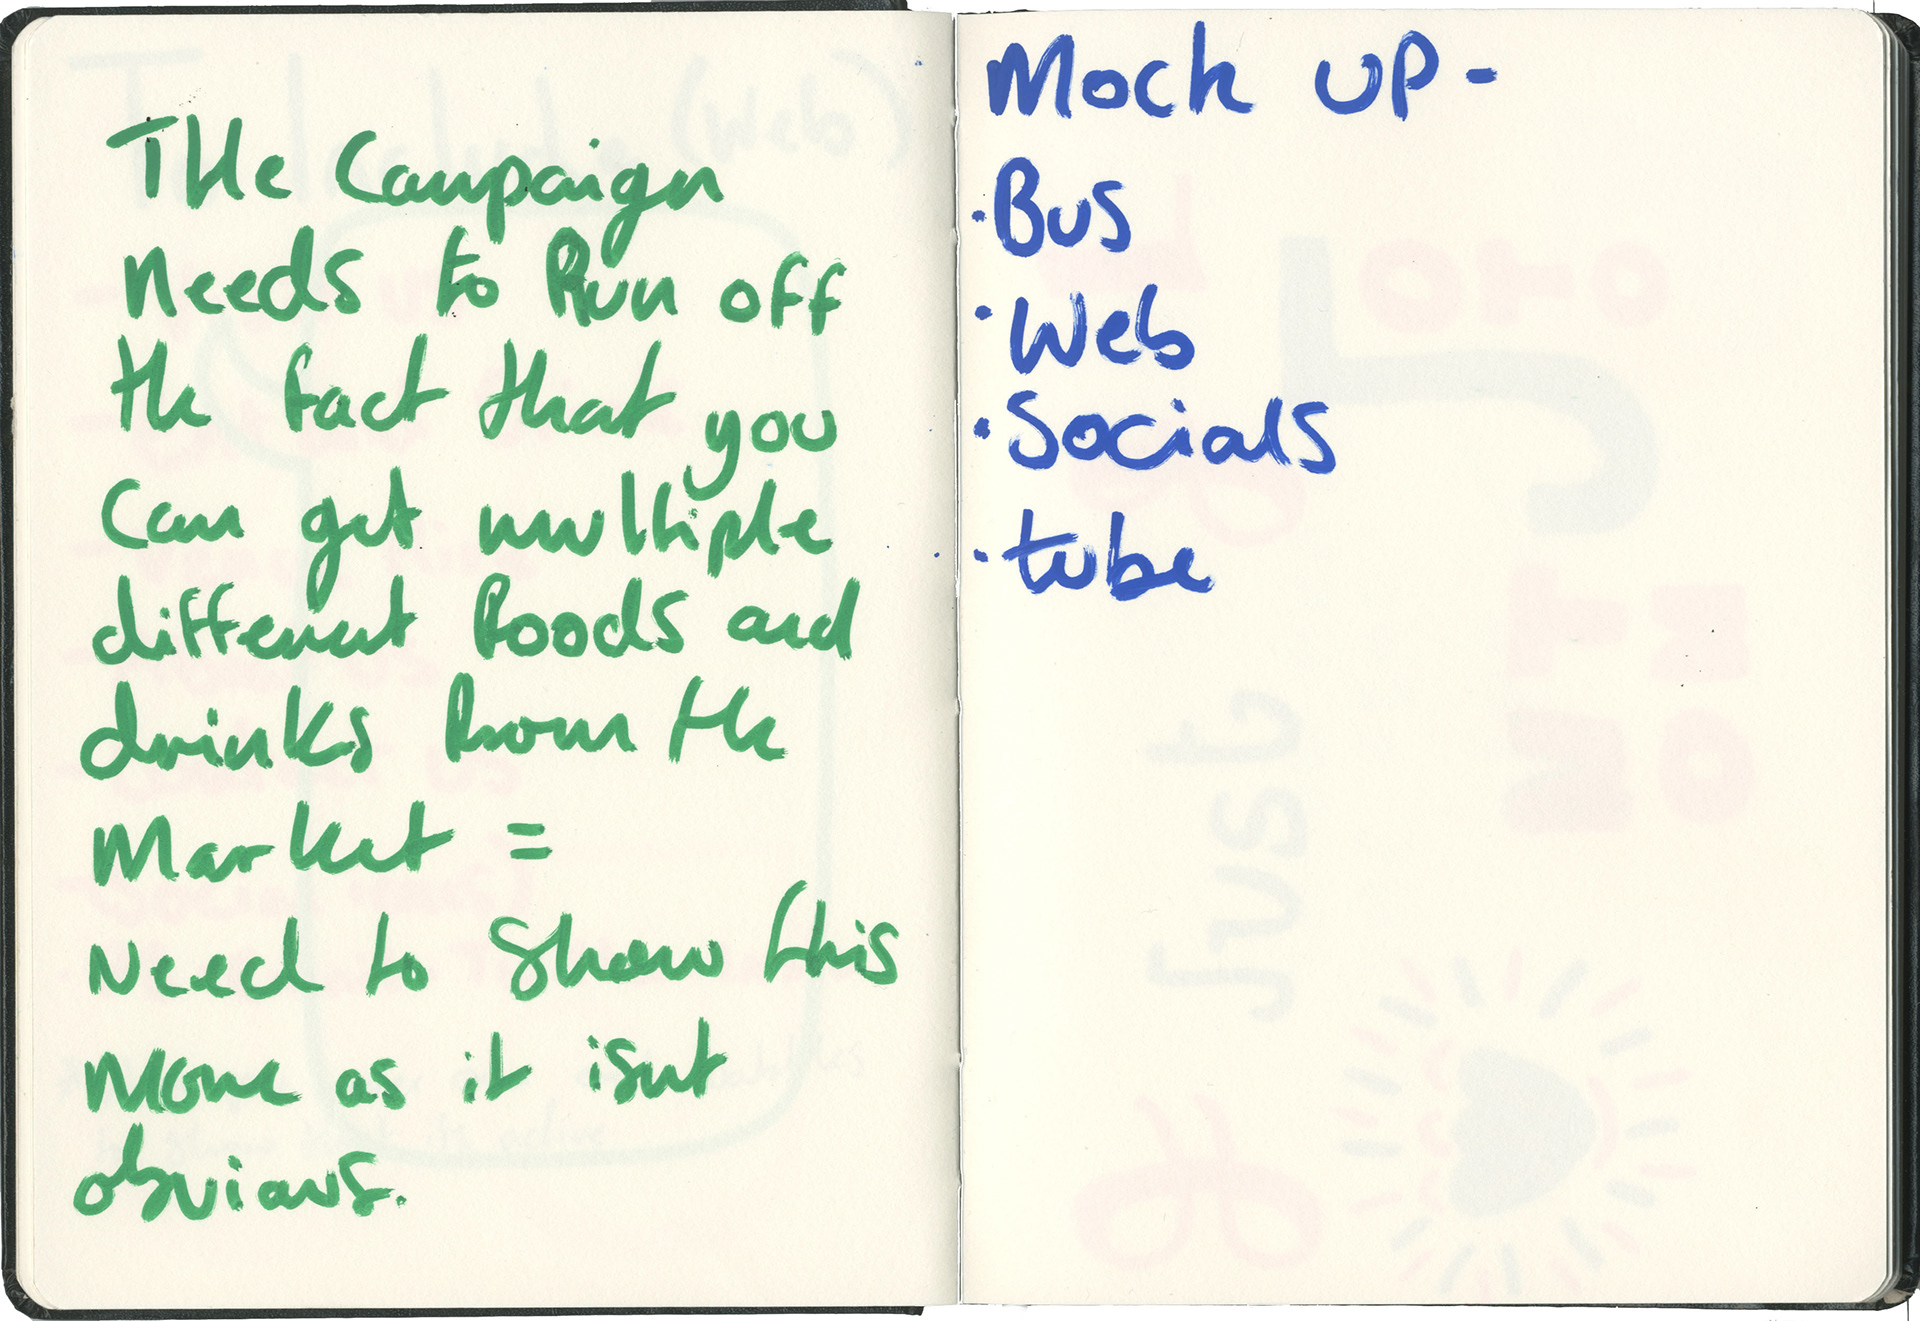 THe Campaign
needs to Run off
the fact that you
can get multiple
different foods and
drinks from the
Market =
Need to show this
more as it isnt
obvious.
Mock up -
· Bus
· Web
· Socials
· tube